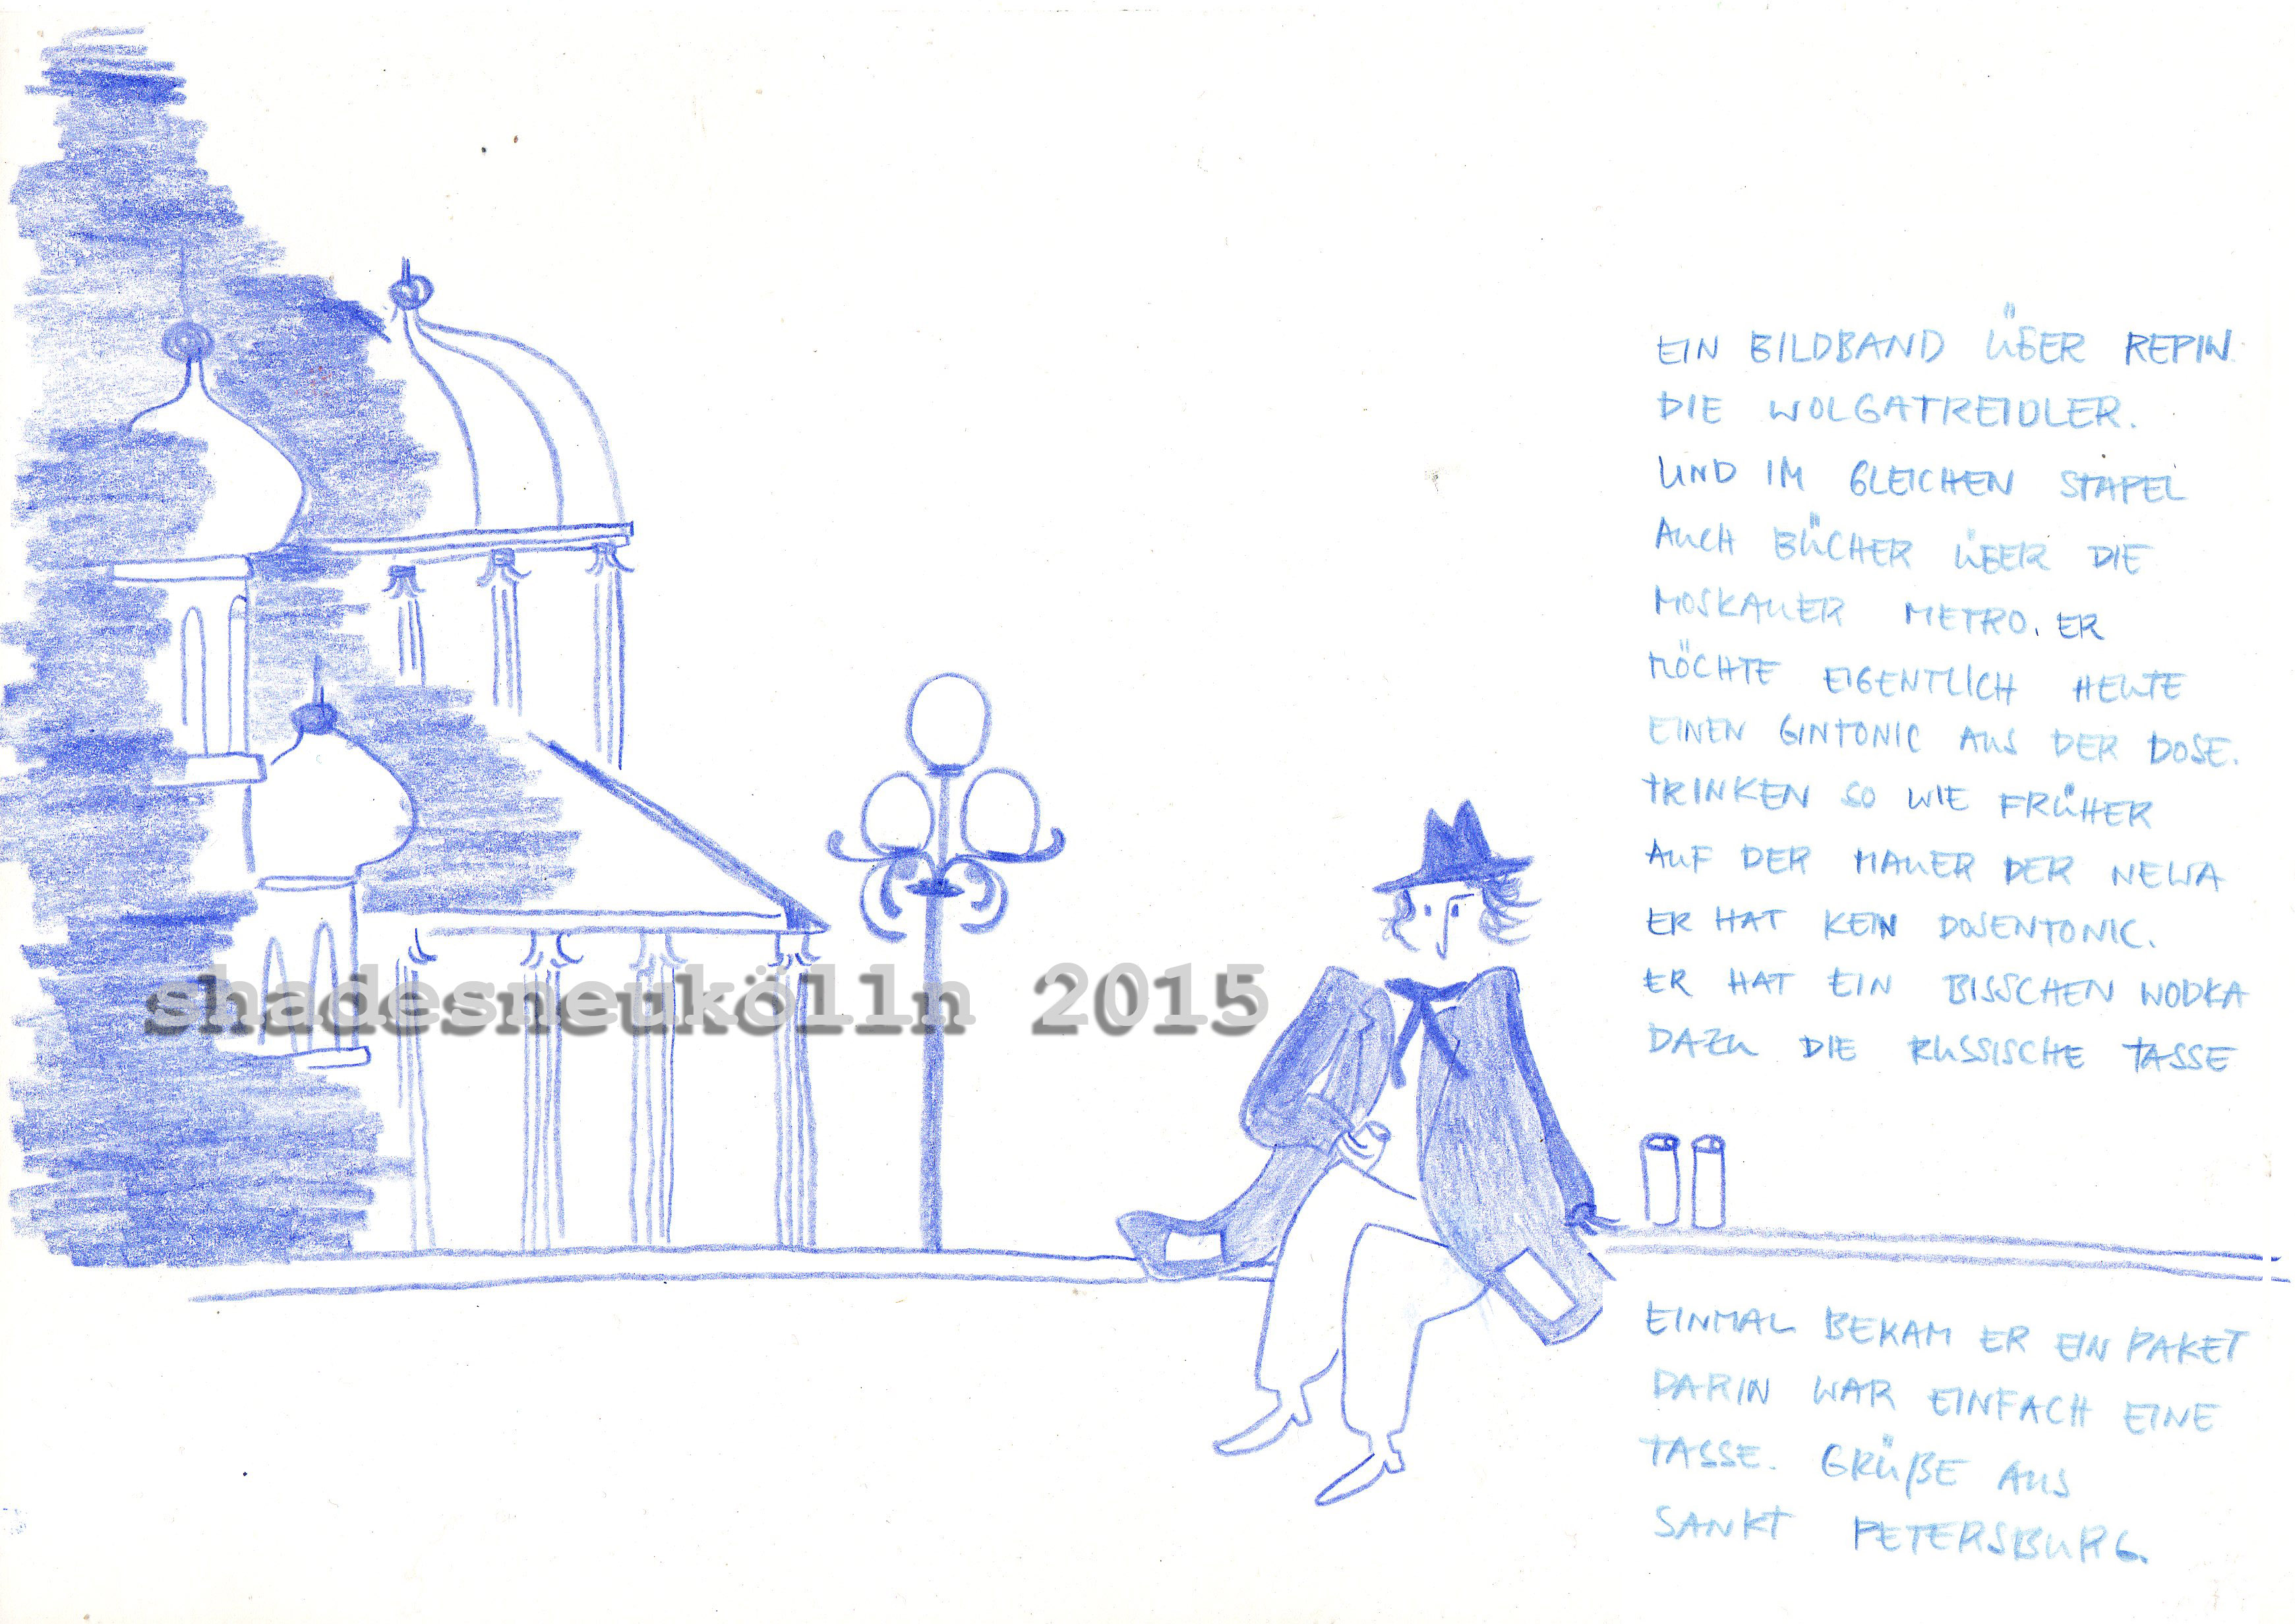 EIN BILDBAND ÜBER REPIN.
DIE WOLGATREIDLER.
UND IM GLEICHEN STAPEL
AUCH BÜCHER ÜBER DIE
MOSKAUER METRO. ER
MÖCHTE EIGENTLICH HEUTE
EINEN GINTONIC AUS DER DOSE.
TRINKEN SO WIE FRÜHER
AUF DER MAUER DER NEWA
ER HAT KEIN DOSENTONIC.
ER HAT EIN BISSCHEN WODKA
DAZU DIE RUSSISCHE TASSE
shadesneukölln 2015
EINMAL BEKAM ER EIN PAKET
DARIN WAR EINFACH EINE
TASSE. GRÜßE AUS
SANKT PETERSBURG.